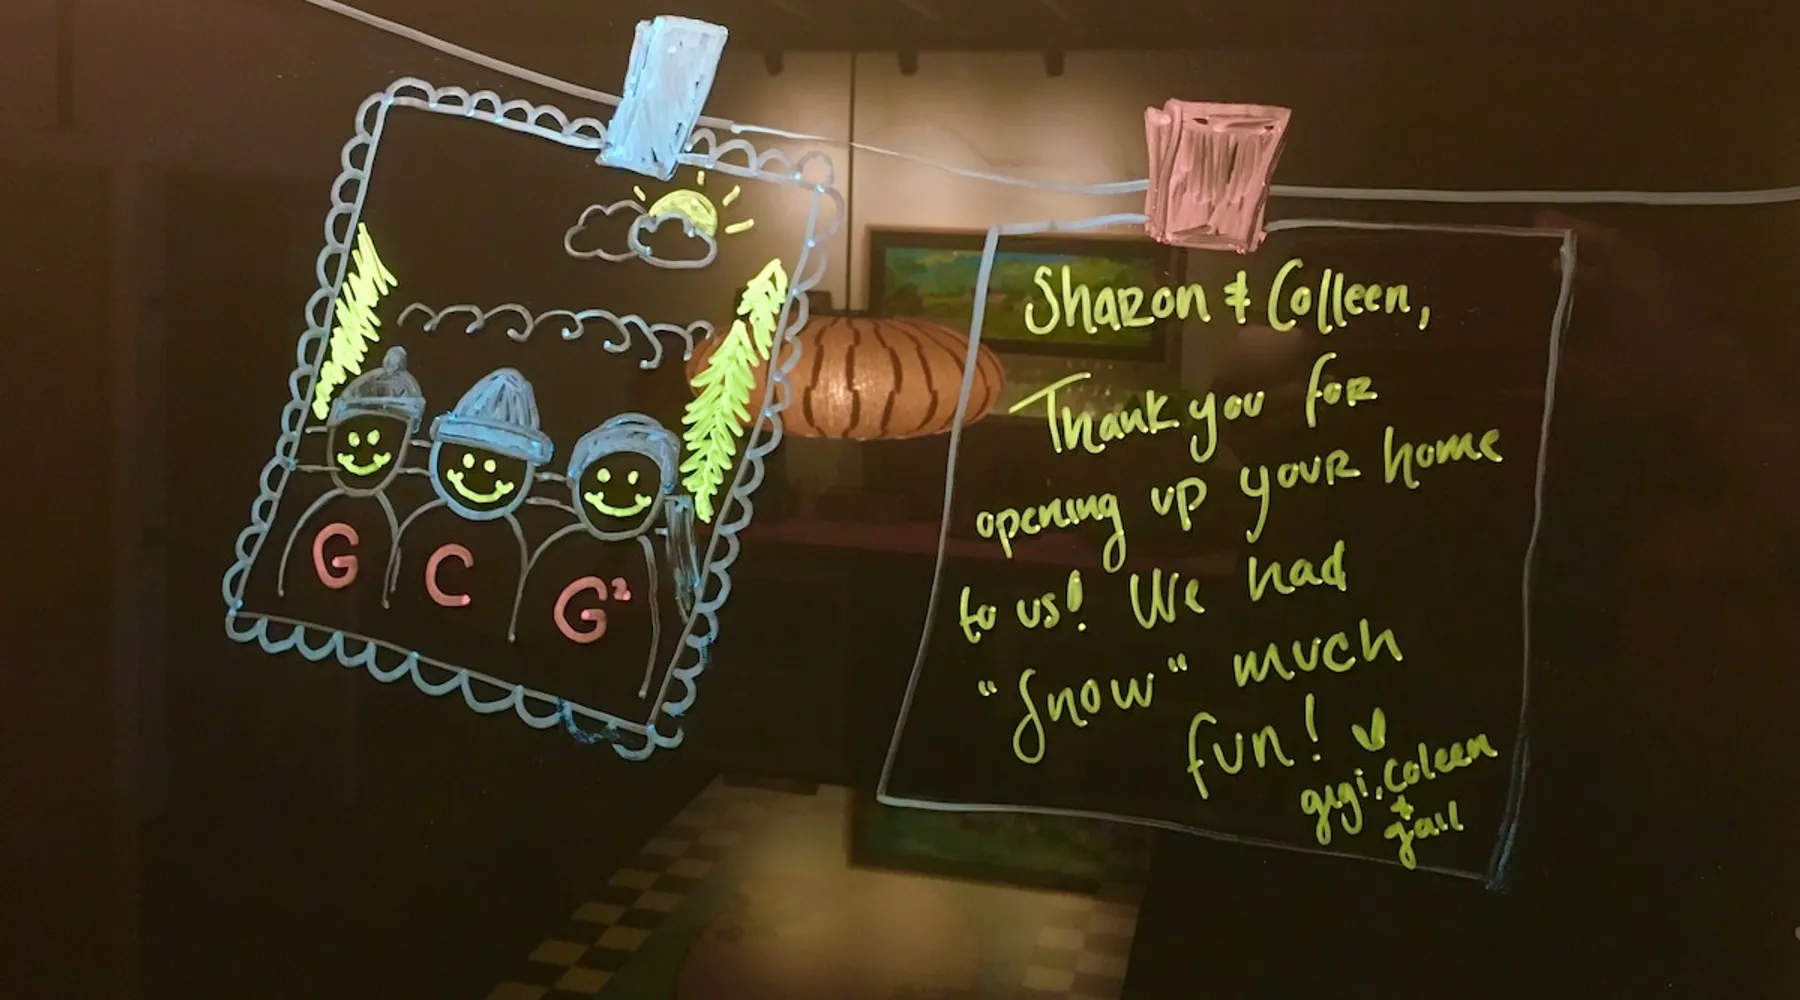 G C G²
Sharon & Colleen,
Thank you for
opening up your home
to us! We had
"Snow" much
fun!
gigi, Coleen
+
gail